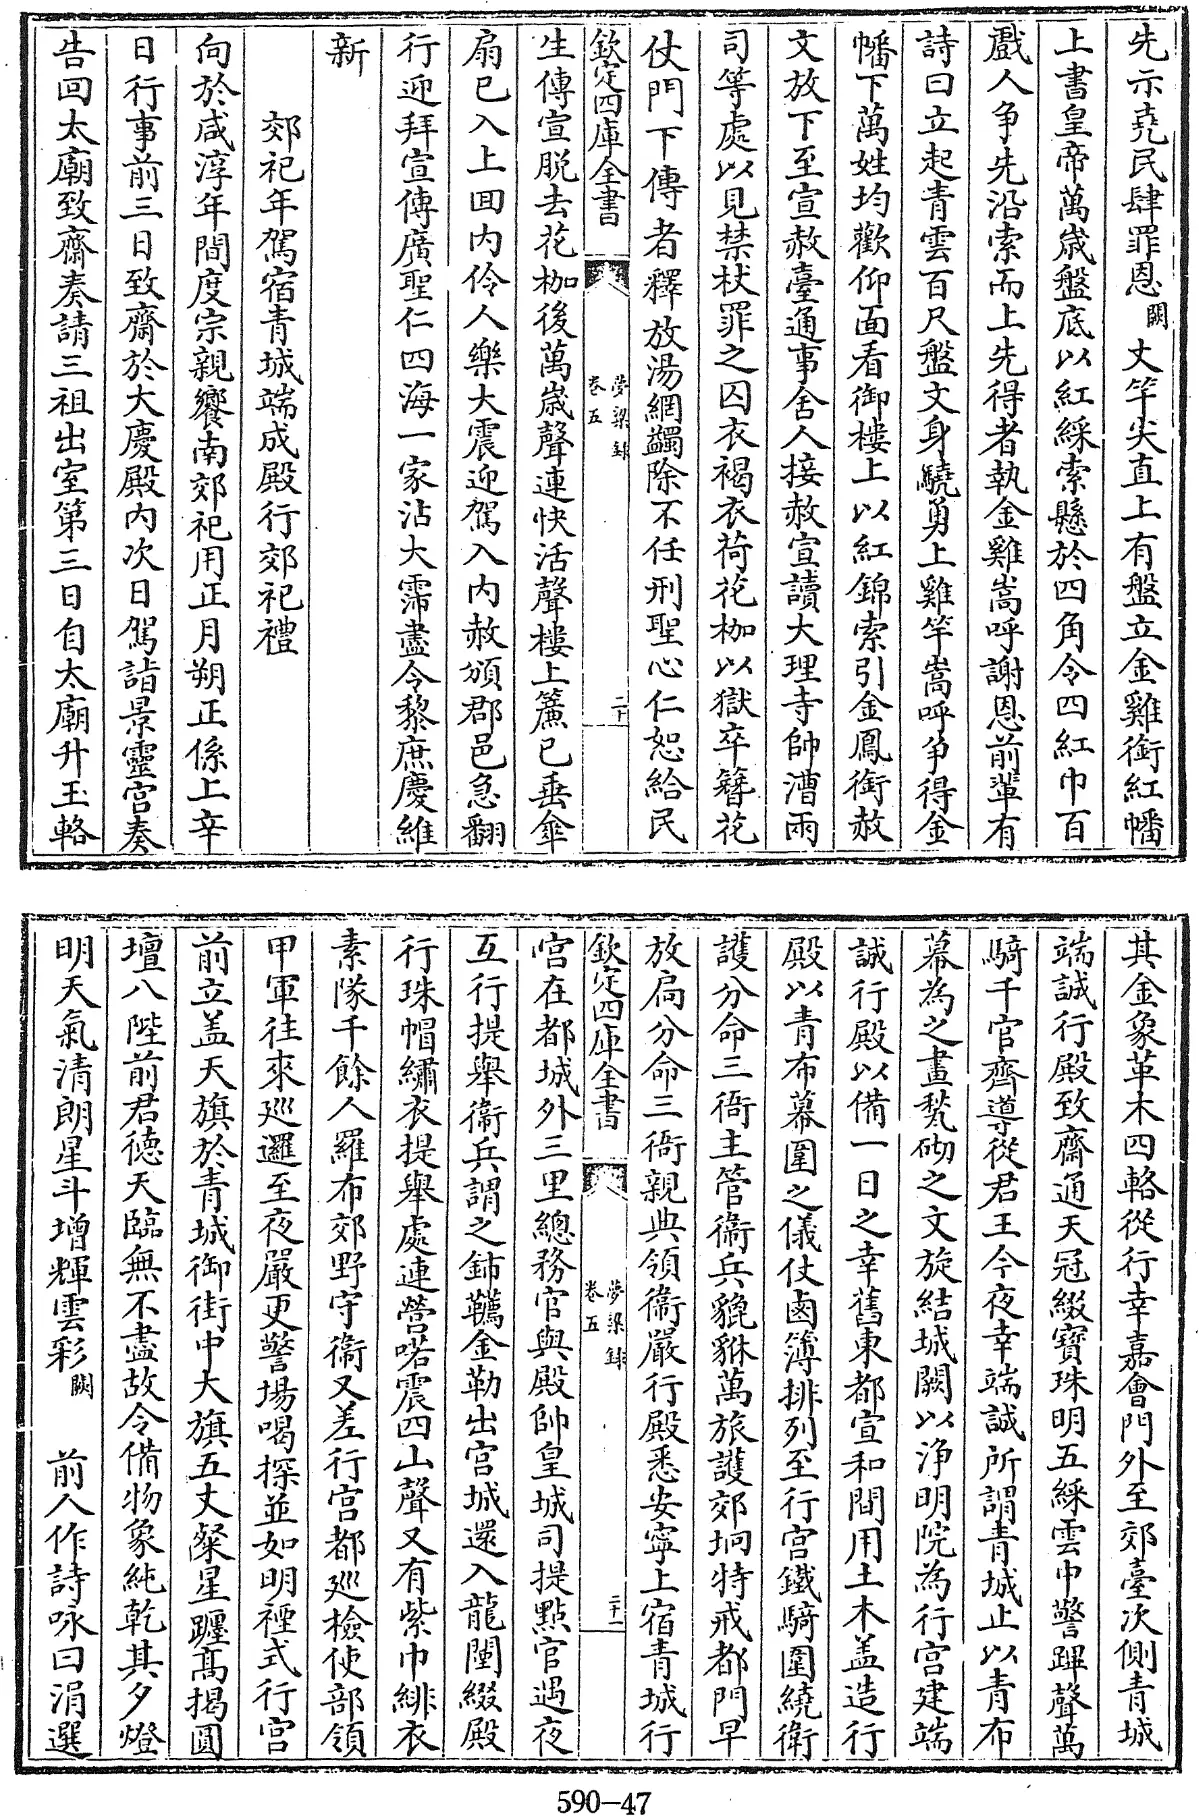 先示堯民肆罪恩闕丈竿尖直上有盤立金雞銜紅幡
上書皇帝萬嵗盤底以紅綵索懸於四角令四紅巾百
戲人争先沿索而上先得者執金雞嵩呼謝恩前輩有
詩曰立起青雲百尺盤文身驍勇上雞竿嵩呼争得金
幡下萬姓均歡仰面看御樓上以紅錦索引金鳳銜赦
文放下至宣赦臺通事舍人接赦宣讀大理寺帥漕兩
司等處以見禁杖罪之囚衣褐衣荷花枷以獄卒簪花
仗門下傳者釋放湯網蠲除不任刑聖心仁恕給民
欽定四庫全書
夢梁録
卷五
二十
生傳宣脱去花枷後萬嵗聲連快活聲樓上簾已垂傘
扇已入上囬内伶人樂大震迎駕入内赦頒郡邑急翻
行迎拜宣傳廣聖仁四海一家沾大霈盡令黎庶慶維
新
郊祀年駕宿青城端成殿行郊祀禮
向於咸淳年間度宗親饗南郊祀用正月朔正係上辛
日行事前三日致齋於大慶殿内次日駕詣景靈宫奏
告回太廟致齋奏請三祖出室第三日自太廟升玉輅
其金象革木四輅從行幸嘉會門外至郊臺次側青城
端誠行殿致齋通天冠綴寶珠明五綵雲中警蹕聲萬
騎千官齊導從君王今夜幸端誠所謂青城止以青布
幕為之畫甃砌之文旋結城闕以浄明院為行宫建端
誠行殿以備一日之幸舊東都宣和間用土木盖造行
殿以青布幕圍之儀仗鹵簿排列至行宫鐵騎圍繞衛
護分命三衙主管衞兵貔貅萬旅護郊坰特戒都門早
放扃分命三衙親典領衞嚴行殿悉安寧上宿青城行
欽定四庫全書
夢梁録
卷五
二十一
宫在都城外三里總務官與殿帥皇城司提點官遇夜
互行提舉衞兵謂之鈰鞴金勒出宫城還入龍闈綴殿
行珠帽繡衣提舉處連營喏震四山聲又有紫巾緋衣
素隊千餘人羅布郊野守衞又差行宫都廵檢使部領
甲軍往來廵邏至夜嚴更警場喝探並如明禋式行宫
前立盖天旗於青城御街中大旗五丈粲星躔髙揭圓
壇八陛前君徳天臨無不盡故令備物象純乾其夕燈
明天氣清朗星斗增輝雲彩闕前人作詩咏曰涓選
590-47